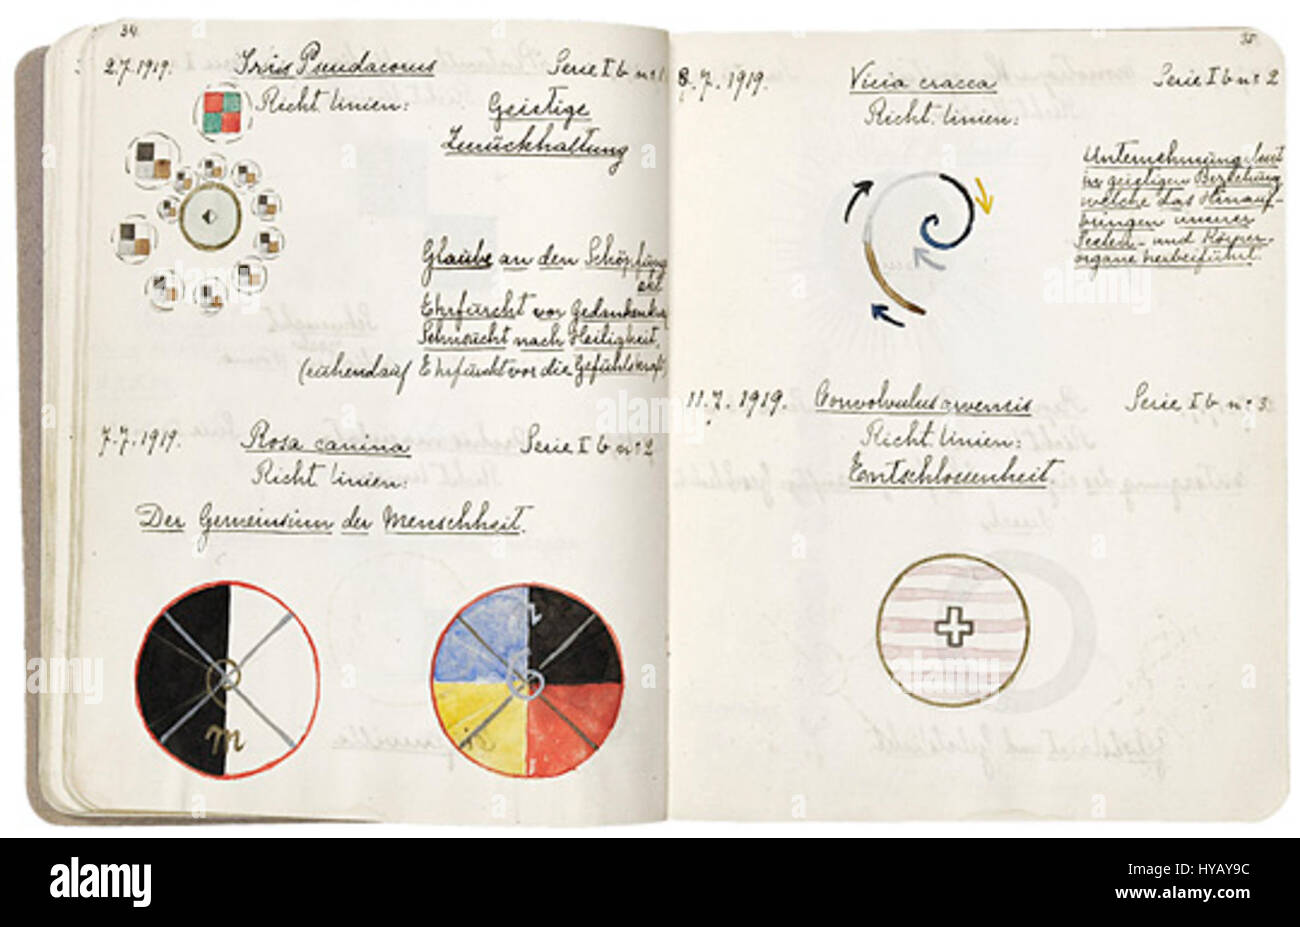 34.
2.7.1919. Iris Pseudacorus Serie I b nr 1
Richtlinien:
Geistige
Zurückhaltung
Glaube an den Schöpfung
Ehrfurcht vor Gedankenkr
Sehnsucht nach Heiligkeit.
(ruhend auf Ehrfurcht vor die Gefühlskraft)
7.7.1919. Rosa canina Serie I b nr 2
Richtlinien:
Der Gemeinsinn der Menschheit.
m
35.
8.7.1919. Vicia cracca Serie I b nr 2
Richtlinien:
Unternehmungslust
in geistigen Beziehung
welche das Hinauf-
bringen unserer
Seelen- und Körper-
organe herbeiführt.
11.7.1919. Convolvulus arvensis Serie I b nr 3.
Richtlinien:
Entschlossenheit
alamy stock photo
HYAY9C
www.alamy.com